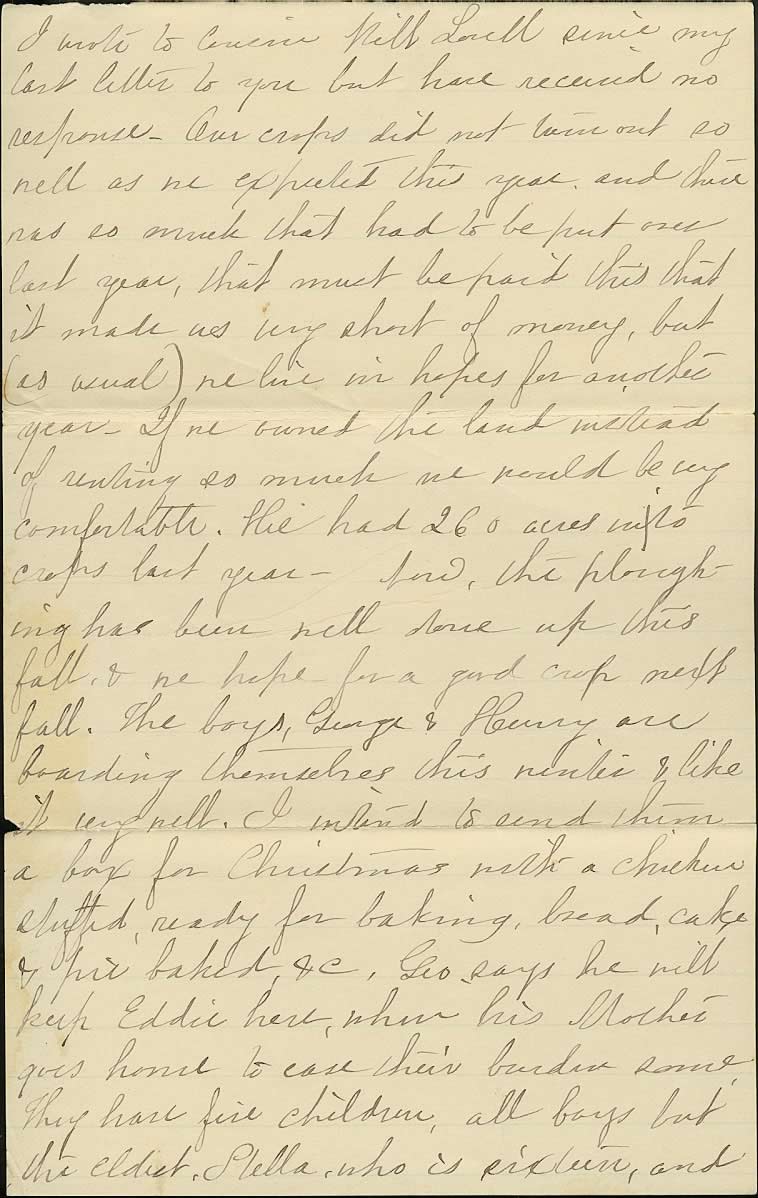 I wrote to Cousin Will Lovell since my
last letter to you but have received no
response - Our crops did not turn out so
well as we expected this year. and there
was so much that had to be put over
last year, that must be paid this that
it made us very short of money, but
(as usual) we live in hopes for another
year - If we owned the land instead
of renting so much we would be very
comfortable. We had 260 acres into
crops last year - Now, the plough-
ing has been well done up this
fall, & we hope for a good crop next
fall. The boys, George & Henry are
boarding themselves this winter & like
it very well. I intend to send them
a box for Christmas with a chicken
stuffed, ready for baking, bread, cake
& pie baked, &c, Geo. says he will
keep Eddie here, when his Mother
goes home to ease their burden some.
They have five children, all boys but
the eldest, Stella, who is sixteen, and